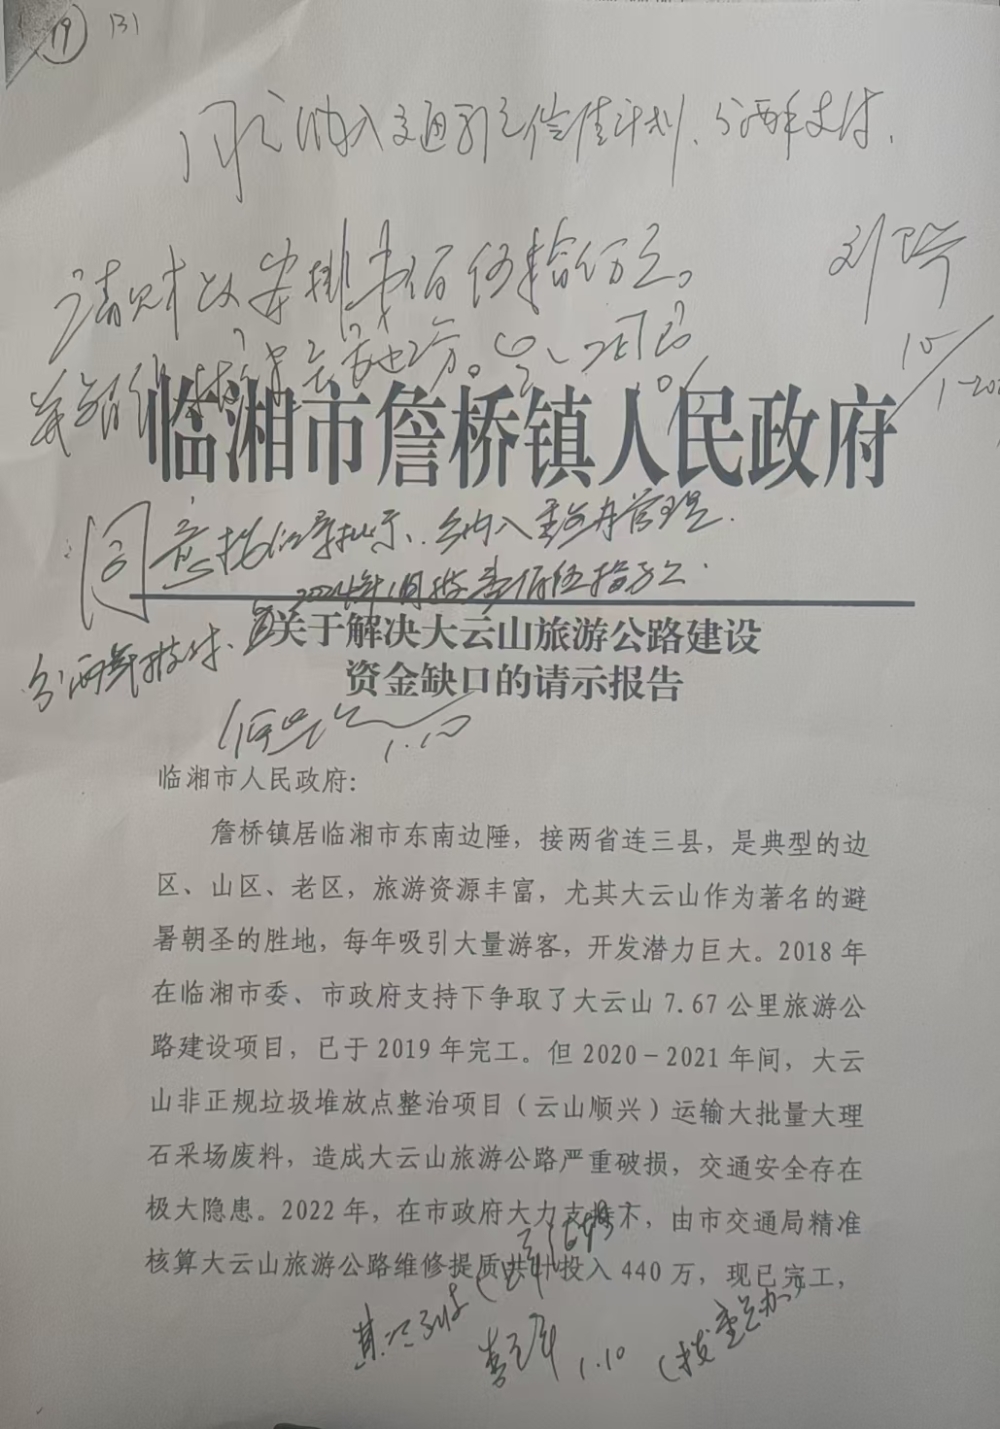 19 131
同意纳入交通引之偿债计划、分两年支付、
请财政安排壹佰伍拾万元。
刘
10/1-202
临湘市詹桥镇人民政府
同意按 批示、纳入 库管理.
2024年1月拨壹佰伍拾万元.
分两年拨付、
关于解决大云山旅游公路建设
资金缺口的请示报告
1.10
临湘市人民政府：
詹桥镇居临湘市东南边陲，接两省连三县，是典型的边
区、山区、老区，旅游资源丰富，尤其大云山作为著名的避
暑朝圣的胜地，每年吸引大量游客，开发潜力巨大。2018 年
在临湘市委、市政府支持下争取了大云山 7.67 公里旅游公
路建设项目，已于 2019 年完工。但 2020－2021 年间，大云
山非正规垃圾堆放点整治项目（云山顺兴）运输大批量大理
石采场废料，造成大云山旅游公路严重破损，交通安全存在
极大隐患。2022 年，在市政府大力支持下，由市交通局精准
核算大云山旅游公路维修提质共计投入 440 万，现已完工，
1.10